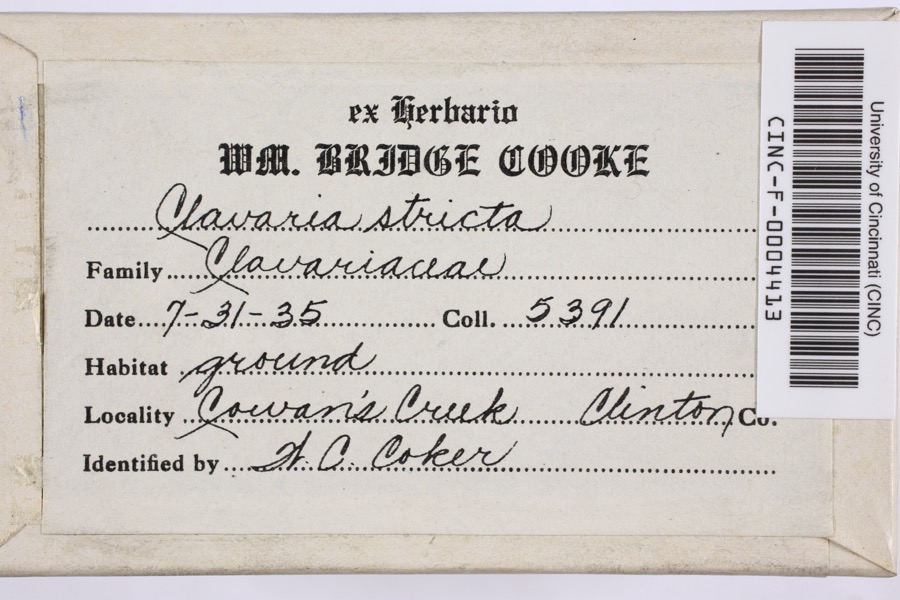 ex Herbario
WM. BRIDGE COOKE
Clavaria stricta
Family Clavariaceae
Date 7-31-35 Coll. 5391
Habitat ground
Locality Cowan's Creek Clinton Co.
Identified by W. C. Coker
University of Cincinnati (CINC)
CINC-F-0004413